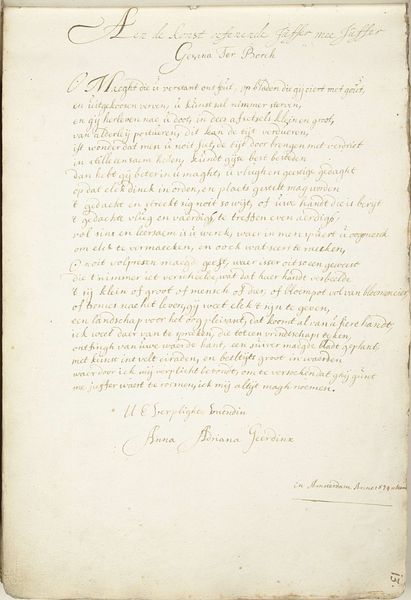 Aen de Const oeffenende Juffer mee Juffer
Gesina Ter Borch
O Maeght die u verstant ons sent, op bladen die gij ciert met geest,
en uitgekoosen verven, u kunst sal nimmer sterven,
en gij herleven nae u doot, in dees afsetsels klein en groot,
van alderleij postueren, dit kan de tijt verdueren,
ist wonder dat men u noit siet, de tijt door brengen met verdriet
in stille eensaem holen, kundt gij se best besteden
Dan hebt gij beter in u maght, u vlugh en geestige gedaght
op dat elk dinck in orden, en plaets gestelt mag worden
t gedacht en streckt sig noit so wijt, of uwe handt die is berijt
t gedachte vlug en vaerdigh, te treffen even aerdigh,
vol sins en leersaem is u werck, waer in men spuert u oogmerck
om elk te vermaecken, en oock wat seer te raecken,
noit volpresen maegd geest, waer ister oit so een geweest
die t nimmer liet verscheele, wat dat haer handt verbeelde
t sij klein of groot of mensch of dier, of bloempot vol van bloemen cier,
of tronies nae het leven, gij weet elck t sijn te geven,
een landschap voor het oog plaisant, dat komt al van u fiere handt,
ick weet daer van te spreken, die tot een vrindtschap teken,
ontfingh van uwe waerde hant, een suiver maegde bladt geplant
met kunst int velt cieraden, en
waer door ick mij verplicht betoude, om te versoeken dat ghij gunt
me juffer waert te roemen, ick mij altijt magh noemen.
U E verplighte vrindin
Anna Adriana Geerdinx
in Amsterdam Anno 1674
13.